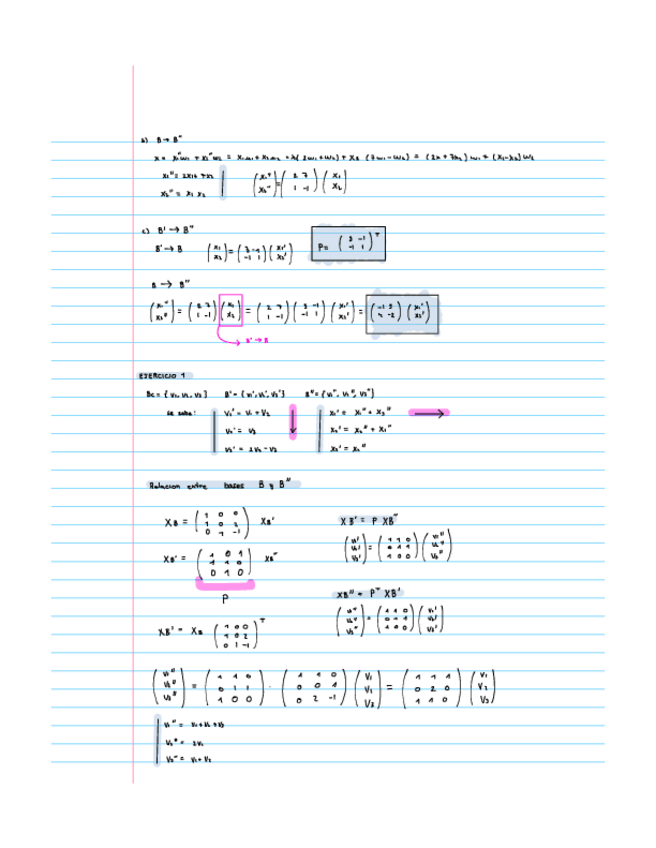 b) B → B''
x = x₁''w₁ + x₂''w₂ = x₁u₁ + x₂u₂ = x₁(2w₁+w₂) + x₂ (7w₁-w₂) = (2x₁+7x₂) w₁ + (x₁-x₂) w₂
(x₁'' x₂'') = (2 7 / 1 -1) (x₁ x₂)
x₂'' = x₁ x₂
c) B' → B''
B' → B (x₁ x₂) = (3 -1 / -1 1) (x₁' x₂') P = (3 -1 / -1 1)ᵀ
B → B''
(x₁'' x₂'') = (2 7 / 1 -1) (x₁ x₂) = (2 7 / 1 -1) (3 -1 / -1 1) (x₁' x₂') =
B' → B
EJERCICIO 1
Bc = {v₁, v₂, v₃} B' = {v₁', v₂', v₃'} B'' = {v₁'', v₂'', v₃''}
se sabe: v₁' = v₁ + v₂ x₁' = x₁'' + x₃''
v₂' = v₃ x₂' = x₂'' + x₁''
v₃' = 2v₂ - v₃ x₃' = x₂''
Relacion entre bases B y B''
XB = (1 0 0 / 1 0 2 / 0 1 -1) XB' XB' = P XB''
XB' = (1 0 1 / 1 1 0 / 0 1 0) XB'' (v₁' v₂' v₃') = (1 1 0 / 0 1 1 / 1 0 0) (v₁'' v₂'' v₃'')
P XB'' = Pᵀ XB'
XB' = XB (1 0 0 / 1 0 2 / 0 1 -1)ᵀ (v₁'' v₂'' v₃'') = (1 1 0 / 0 1 1 / 1 0 0) (v₁' v₂' v₃')
(v₁'' v₂'' v₃'') = (1 1 0 / 0 1 1 / 1 0 0) · (1 1 0 / 0 0 1 / 0 2 -1) (v₁ v₂ v₃) = (1 1 1 / 0 2 0 / 1 1 0) (v₁ v₂ v₃)
v₁'' = v₁+v₂+v₃
v₂'' = 2v₂
v₃'' = v₁+v₂